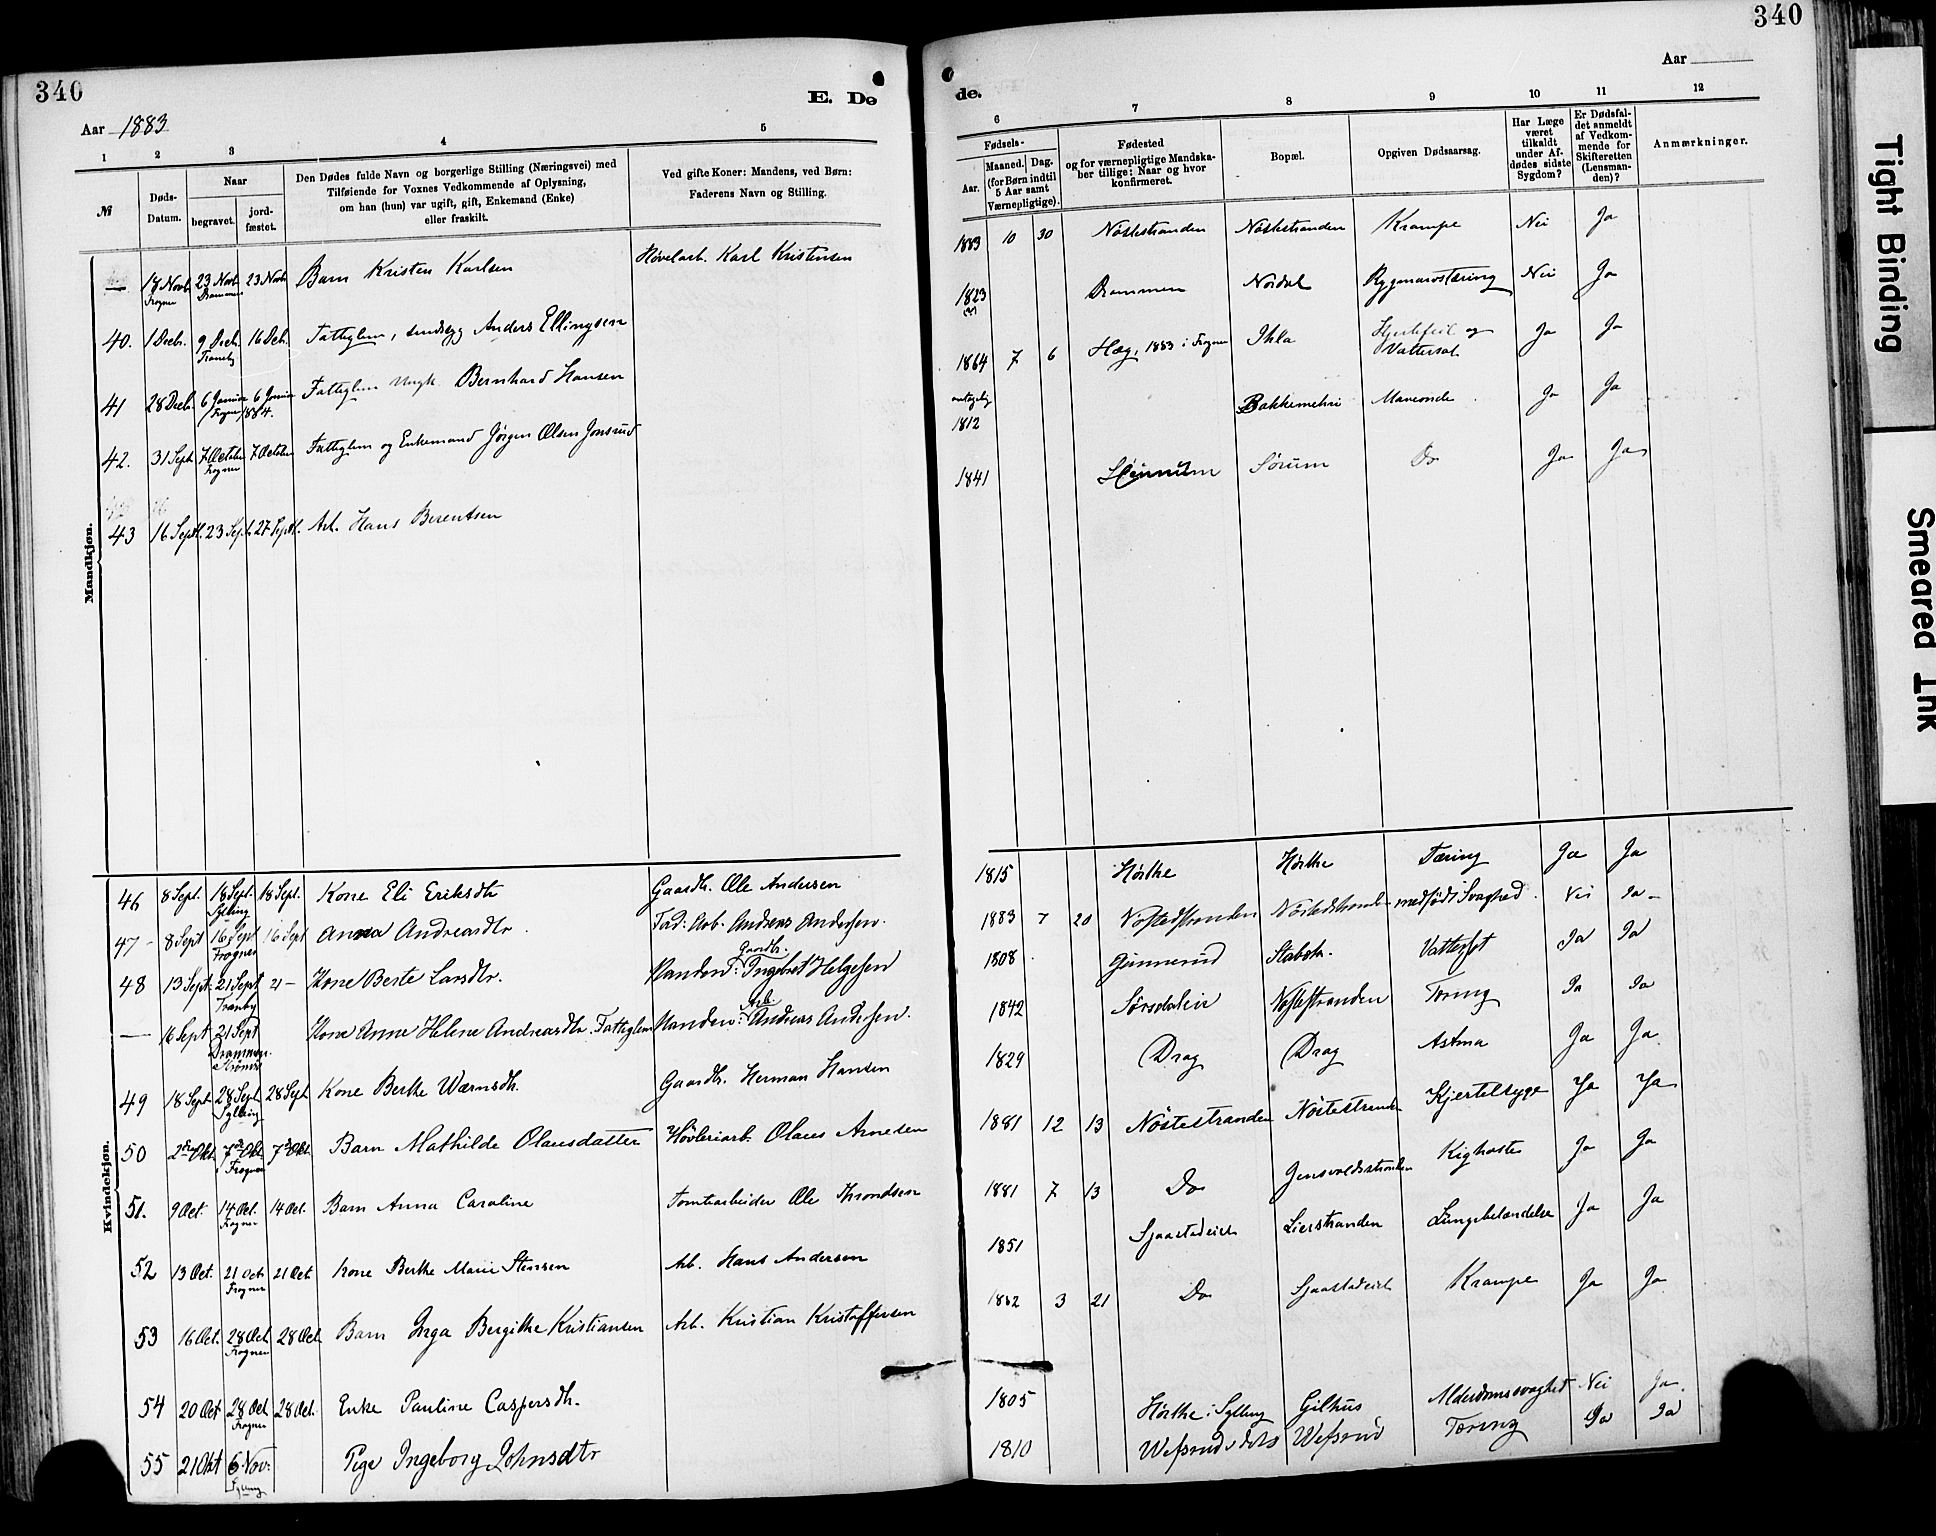 340
Aar 1883
E. Dø
1 2 3 4 5
№
Døds-
Datum.
Naar
begravet.
jord-
fæstet.
Den Dødes fulde Navn og borgerlige Stilling (Næringsvei) med
Tilføiende for Voxnes Vedkommende af Oplysning,
om han (hun) var ugift, gift, Enkemand (Enke)
eller fraskilt.
Ved gifte Koner: Mandens, ved Børn:
Faderens Navn og Stilling.
Mandkjøn.
— 18 Novb. 23 Novb. 23 Novb. Barn Kristen Karlsen Høvelarb. Karl Kristensen
Frogner Drammen
40. 1 Decb. 9 Decb. 16 Deb. Fattiglem, Anders Ellingsen
Tranby
41 28 Decb. 6 Januar 6 Januar Fattiglem Ungk. Bernhard Hansen
Frogner 1884.
42. 31 Sept. 7 October 7 October Fattiglem og Enkemand Jørgen Olsen Jonsrud
Frogner
43 16 Septb. 23 Sep. 27 Septb. Arb. Hans Berentsen
Kvindekjøn.
46 8 Sept. 18 Sept. 18 Sept. Kone Eli Eriksdtr Gaardbr. Ole Andersen
Sylling
47 - 8 Sept 16 Sept 16 Sept Anna Andreasdtr. Fad: Arb. Andreas Andersen.
Frogner
48 13 Sept. 21 Sept 21 — Kone Berte Larsdtr. Manden: Gaardbr. Ingebret Helgesen
Tranby
— 16 Sept 21 Sept Kone Anne Helene Andreasdtr. Fattiglem Manden: Arb. Andreas Andersen.
Drammen
Strømsø
49 18 Sept 28 Sept. 28 Sept Kone Berthe Wærnsdtr. Gaardbr. Herman Hansen
Sylling
50 2den Okt. 7de Okt. 7de Okt. Barn Mathilde Olausdatter Høvleriarb. Olaus Arnesen
Frogner
51. 9 Oct. 14 Oct. 14 Oct. Barn Anna Caroline Tomtearbeider Ole Throndsen
Frogner
52 13 Oct. 21 Oct 21 Oct Kone Berthe Marie Stensen Arb. Hans Andersen
Frogner
53 16 Oct. 28 Oct 28 Oct Barn Inga Bergithe Kristiansen Arb. Kristian Kristoffersen
Frogner
54 20 Oct 28 Oct 28 Oct. Enke Pauline Caspersdtr.
Frogner
55 21 Okt 6 Nov: Pige Ingeborg Johnsdtr
Sylling
340
Aar
de.
6 7 8 9 10 11 12
Fødsels-
Aar.
Maaned. Dag.
(for Børn indtil
5 Aar samt
Værnepligtige).
Fødested
og for værnepligtige Mandska-
ber tillige: Naar og hvor
konfirmeret.
Bopæl.
Opgiven Dødsaarsag.
Har Læge
været
tilkaldt
under Af-
dødes sidste
Sygdom?
Er Dødsfal-
det anmeldt
af Vedkom-
mende for
Skifteretten
(Lensman-
den)?
Anmærkninger.
1883 10 30 Nøstestranden Nøstestranden Krampe Nei Ja
1823 Drammen Nordal Rygmarvstæring Nei Ja
1864 7 6 Hæg, 1883 i Frogner Ihla Hjertefeil og Ja Ja
Vattersot
antagelig
1812 Bakkemehri Maveonde Ja Ja
1841 Sørum Do Ja Ja
1815 Hørthe Hørthe Tæring Ja Ja
1883 7 20 Nøstedstranden Nøstedstranden medfødt Svaghed. Nei Ja —
1808 Gunnerud Stabæk. Vattersot Ja Ja
1842 Sørsdaleie Nøstestranden Tæring Ja Ja
1829 Drag Drag Astma Ja Ja
1881 12 13 Nøstestranden Nøstestranden Kjertelsyge Ja Ja
1881 7 13 Do Gensvoldsstranden Kighoste Ja Ja
1851 Sjaastadeiet Lierstranden Lungebetændelse Ja Ja
1882 3 21 Do Sjaastadeiet Krampe Ja Ja
1805 Hørthe i Sylling Gilhus Alderdomssvaghed Nei Ja.
1810 Wefsrud Tæring Ja Ja
Tight Binding
Smeared Ink